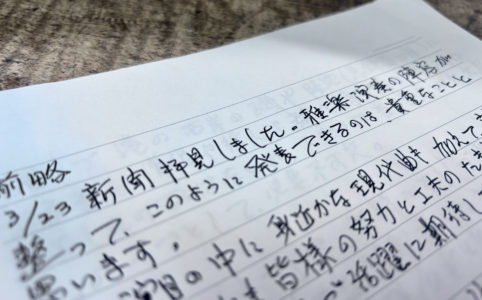 前略
3/23 新聞 拝見しました。雅楽 演奏の陣容が
整って、このように 発表できるのは、貴重なことと
思います。
演目の中に 身近かな 現代曲も 加えて
皆様の努力と工夫のた
活躍に期待し